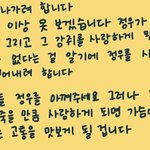 나가려 합니다
이상 못 보겠습니다 정우가
그리고 그 강쥐를 사랑하게 될
없다는 걸 알기에 정우를 시
어내려 합니다
정우를 아껴주세요 그러나
만큼 사랑하게 되면 가슴이
고통을 맛보게 될 겁니다